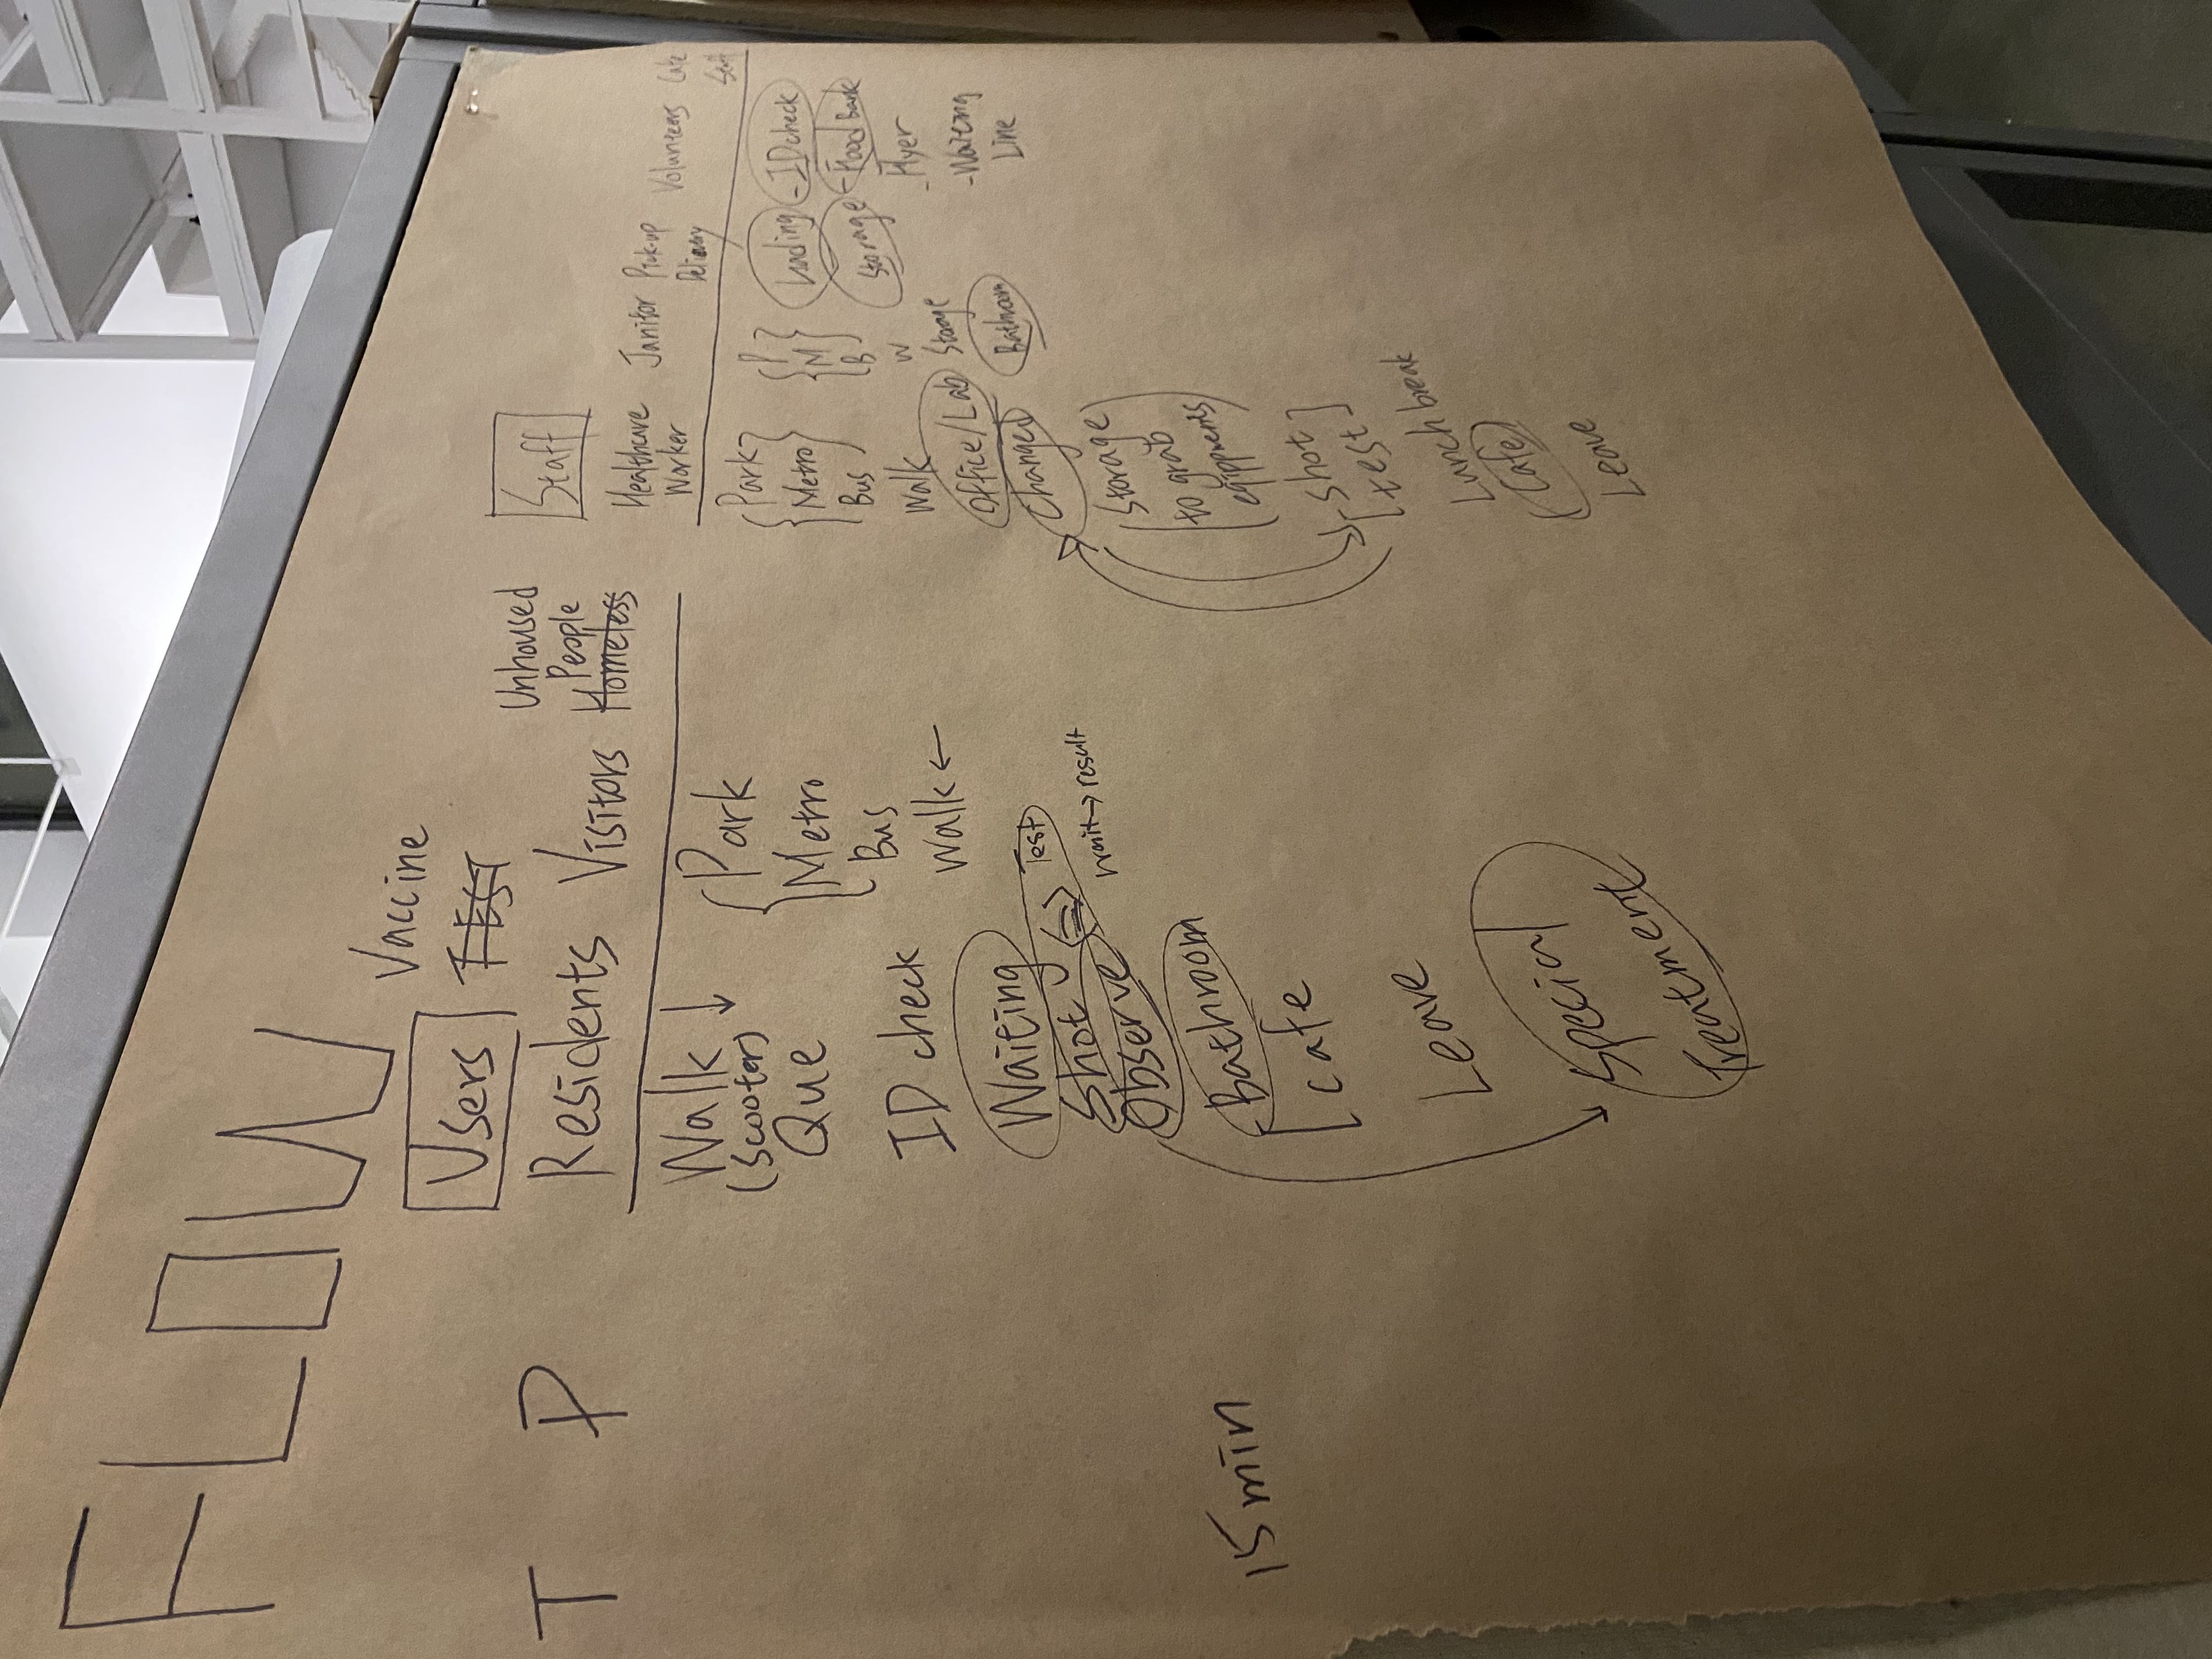 FLOW
Vaccine
Users TEST
T P Residents Visitors
Unhoused
People
Homeless
Walk ↓
(scooter)
Que
ID check
Waiting
Shot ⇔ Test
Observe
wait→result
Bathroom
cafe
Leave
Special
Treatment
15 min
Park
Metro
Bus
Walk ←
Staff
Healthcare
Worker
Park
Metro
Bus
Walk
Office/Lab
Changed
Storage
to grab
eqippments
Shot
test
Lunch break
Cafe
Leave
Janitor
P
M
B
W
Storage
Bathroom
Pick-up
Delivery
Loading
Storage
Volunteers
- ID check
- Food Bank
- Flyer
- Waiting
Line
Cafe
Staff